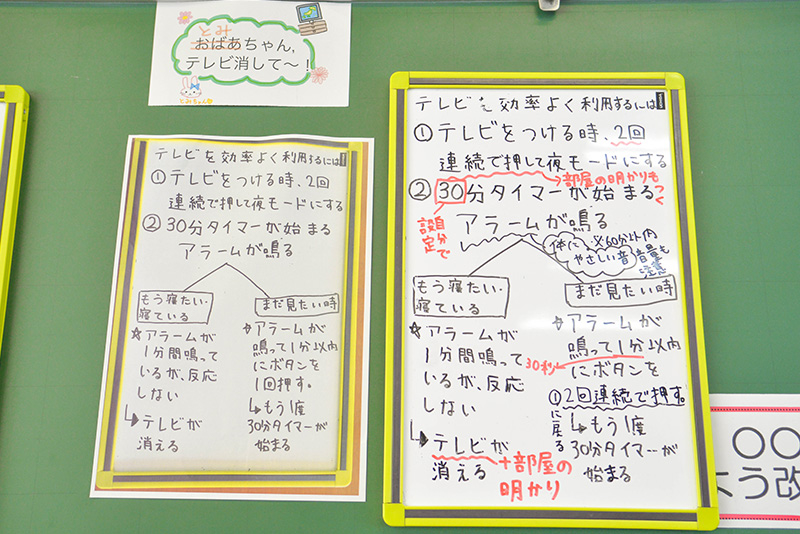 とみ
おばあちゃん、
テレビ消して～!
とみちゃん
テレビを効率よく利用するには
①テレビをつける時、2回
連続で押して夜モードにする
②30分タイマーが始まる
アラームが鳴る
もう寝たい・
寝ている
☆アラームが
1分間鳴って
いるが、反応
しない
↳テレビが
消える
まだ見たい時
☆アラームが
鳴って1分以内
にボタンを
1回押す。
↳もう1度
30分タイマーが
始まる
テレビを効率よく利用するには
①テレビをつける時、2回
連続で押して夜モードにする
→部屋の明かりもつく
②30分タイマーが始まる
自分で
設定
アラームが鳴る
体に
やさしい音
※60分以内
音量も
もう寝たい・
寝ている
☆アラームが
1分間鳴って
いるが、反応
しない
↳テレビが
消える
+部屋の
明かり
まだ見たい時
☆アラームが
鳴って1分以内
30秒
にボタンを
2回連続で押す。
①に戻る
↳もう1度
30分タイマーが
始まる
○○
よう改